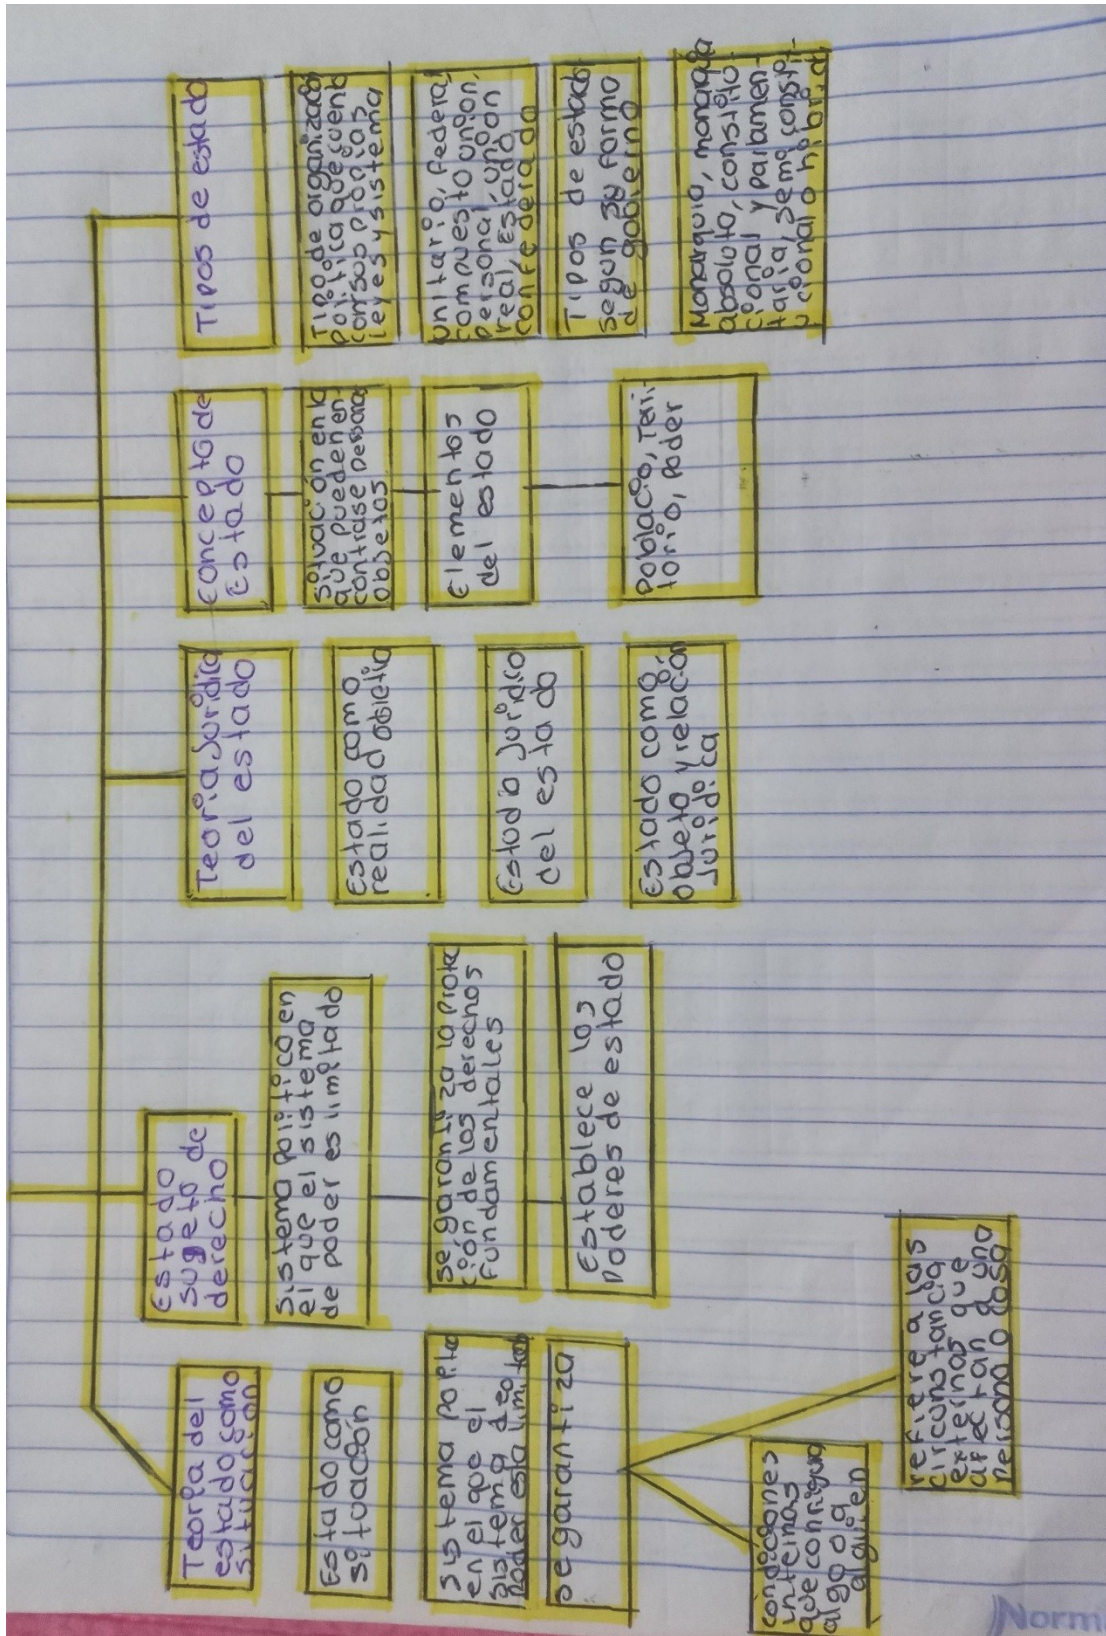 Teoria del
estado como
situacion
Estado como
situación
Sistema politico
en el que el
sistema de
poder esta limitado
se garantiza
condiciones
internas
que configura
algo o a
alguien
refiere a las
circunstancia
externas que
afectan a uno
persona o cosa
Estado
sugeto de
derecho
Sistema político en
el que el sistema
de poder es limitado
se garantiza la prote
ción de los derechos
fundamentales
Establece los
Poderes de estado
Teoria Juridica
del estado
Estado como
realidad objetiva
Estudio juridico
del estado
Estado como
objeto y relación
Juridica
concepto de
Estado
Situación en la
que pueden en-
contrase personas
objetos
Elementos
del estado
Población, Teri-
torio, poder
Tipos de estado
Tipo de organización
política que cuenta
con sus propias
leyes y sistema
unitario, federal
compuesto union,
personal, union
real, Estado
confederado
Tipos de estado
segun su forma
de gobierno
Monarquia, monarquia
absoluta, constitu
cional y parlamen-
taria, semi constit-
ucional o hibrida
Norm